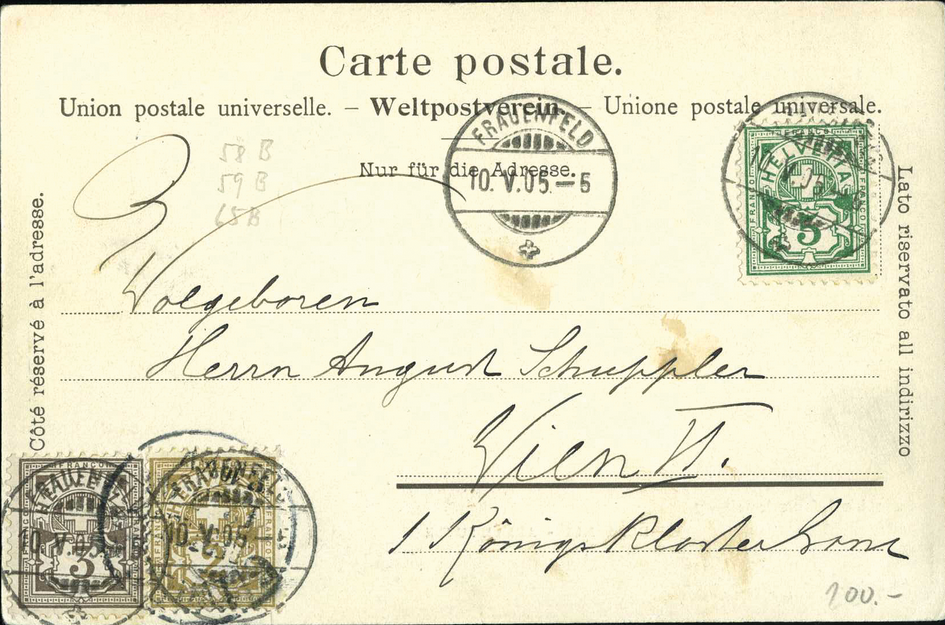 Carte postale.
Union postale universelle. – Weltpostverein. – Unione postale universale.
Nur für die Adresse.
FRAUENFELD
10. V. 05. – 6
HELVETIA
FRANCO
5
58 B
59 B
65 B
Côté réservé à l'adresse.
Lato riservato all indirizzo
Wolgeboren
Herrn August Schuppler
Wien VI.
1 Königsklostergasse
FRANCO
FRAUENFELD
10. V. 05
3
FRAUENFELD
10. V. 05
2
100.-